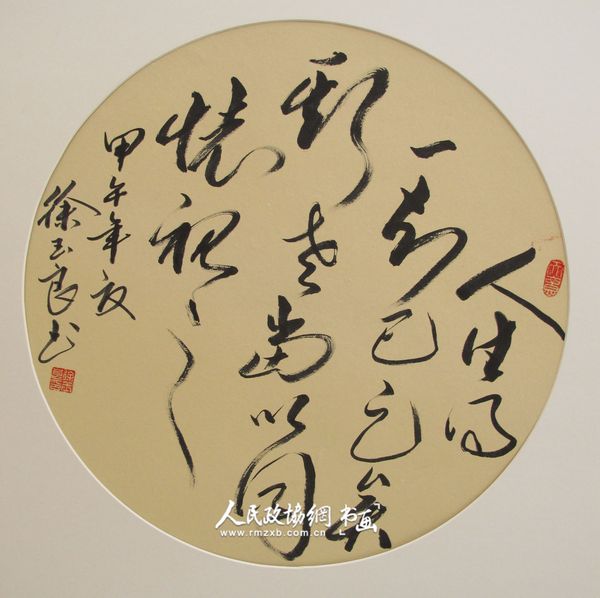 人生得
一知己足矣
斯世當以同
懷視之
甲午年夏
徐玉良书
人民政協網 书画
www.rmzxb.com.cn